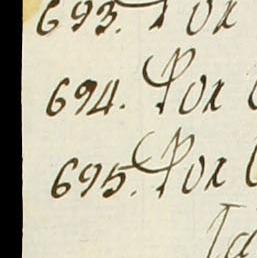 693. Por
694. Por
695. Por